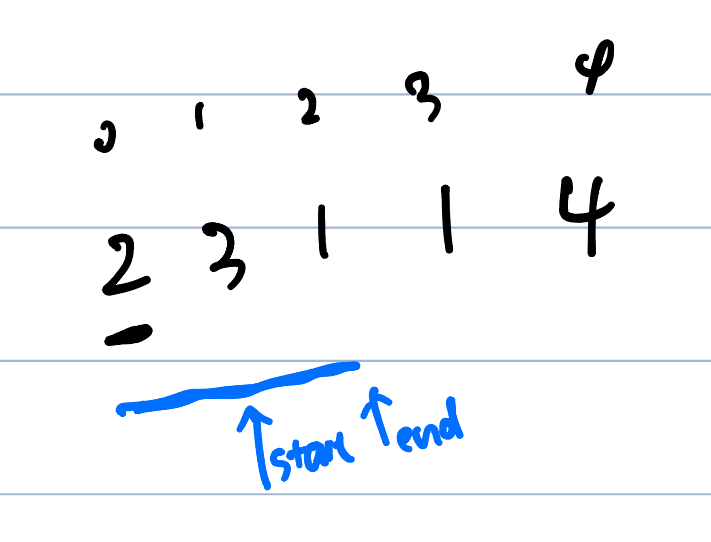 0 1 2 3 4
2 3 1 1 4
start end